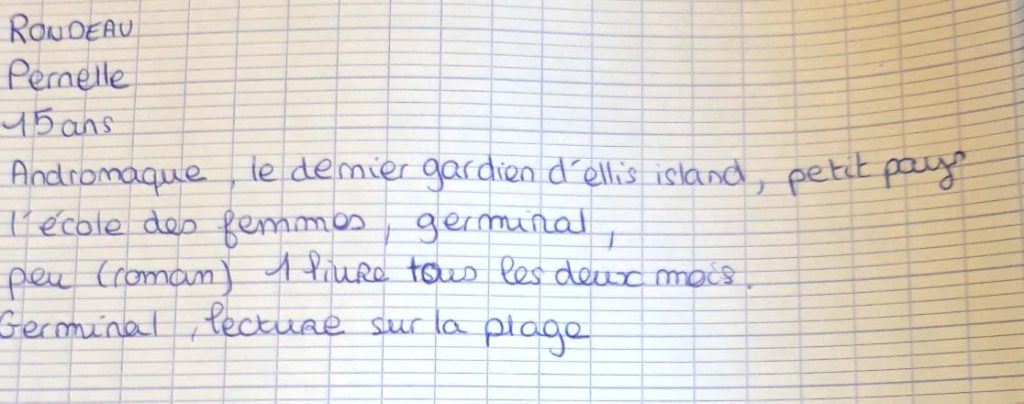 RONDEAU
Pernelle
15 ans
Andromaque, le dernier gardien d'ellis island, petit pays
l'école des femmes, germinal,
peu (roman) 1 livre tous les deux mois.
Germinal, lecture sur la plage